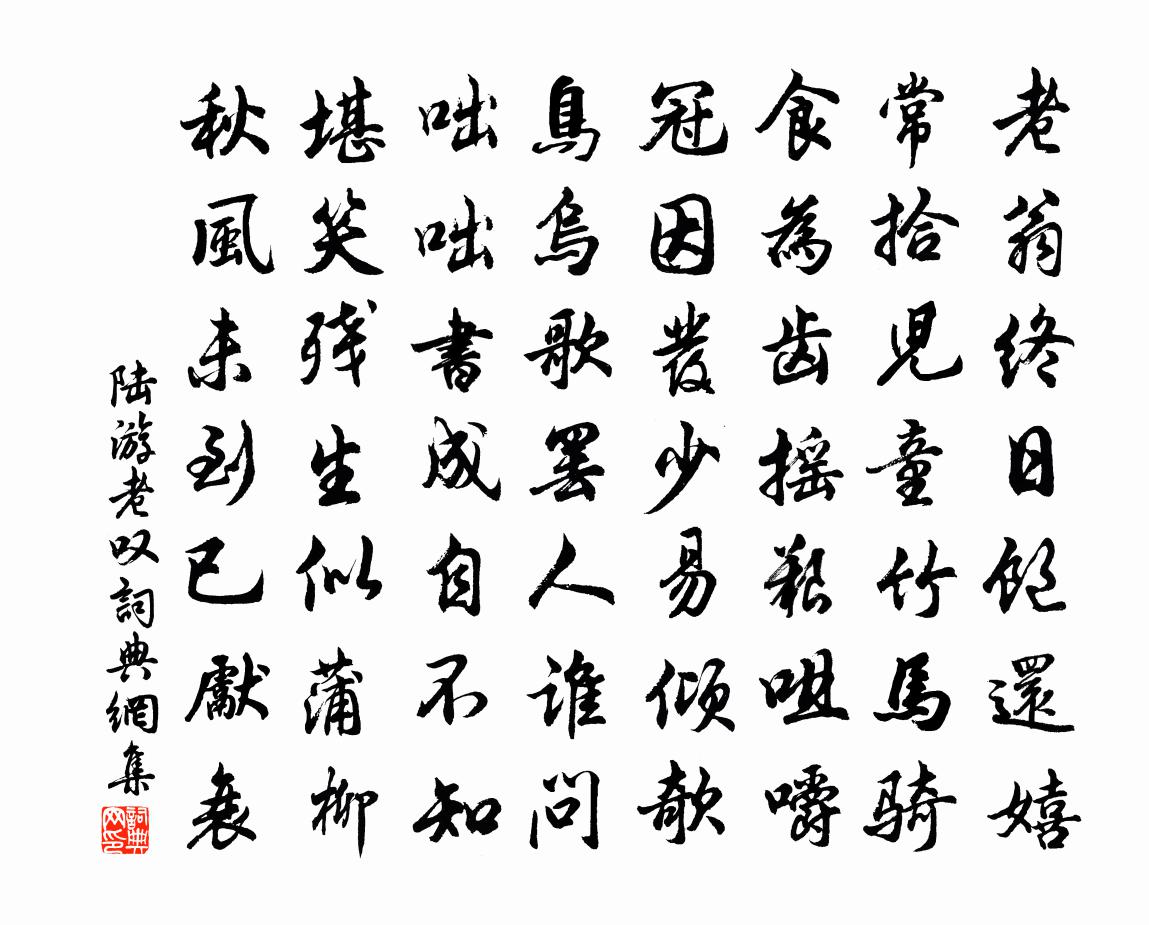 老翁終日飽還嬉
常拾兒童竹馬骑
食為齿摇艱咀嚼
冠因發少易傾欹
烏烏歌罷人誰問
咄咄書成自不知
堪笑残生似蒲柳
秋風未到已獻衰
陆游老叹詞典網集
詞典网印